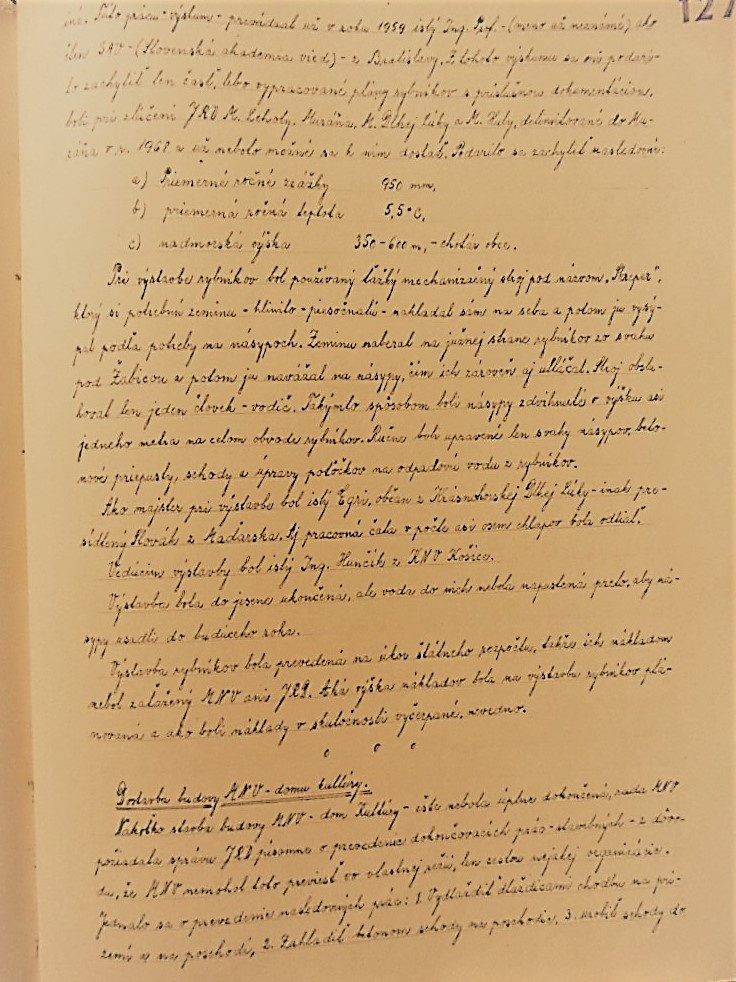 127
iné. Túto prácu - výskum - prevádzal už v roku 1959 istý Ing. Prof. - (meno už neznáme) ako
člen SAV - (Slovenská akademia vied) - z Bratislavy. Z tohoto výskumu sa mi podari-
lo zachytiť len časť, lebo vypracované plány rybníkov s príslušnou dokumentáciou,
boli pri zlúčení JRD K. Lehoty. K. Dlhej Lúky a K. delimitované do
v r. 1968 a už nebolo možné sa k nim dostať. Podarilo sa zachytiť nasledovné:
a) Priemerné ročné zrážky 950 mm,
b) priemerná ročná teplota 5,5°C,
c) nadmorská výška 350-600 m, - chotár obce.
Pri výstavbe rybníkov bol používaný ťažký mechanizačný stroj pod názvom,
ktorý si potrebnú zeminu - hlinito - piesočnatú - nakladal sám na seba a potom ju vysý-
pal podľa potreby na násypoch. Zeminu naberal na južnej strane rybníkov zo svahu
pod Žabicou a potom ju navážal na násypy, čím ich zároveň aj utláčal. Stroj obslu-
hoval len jeden človek - vodič. Takýmto spôsobom boli násypy zdvihnuté v výšku asi
jedneho metra na celom obvode rybníkov. Ručne boli upravené len svahy násypov, beto-
nové priepusty, schody a úpravy potôčkov na odpadovú vodu z rybníkov.
Ako majster pri výstavbe bol istý Egri, občan z Krásnohorskej Dlhej Lúky - inak pre-
sídlený Slovák z Maďarska. Aj pracovná čata v počte asi osem chlapov bola odtiaľ.
Vedúcim výstavby bol istý Ing. Hunčík z KNV Košice.
Výstavba bola do jesene ukončená, ale voda do nich nebola napustená preto, aby ná-
sypy usadli do budúceho roka.
Výstavba rybníkov bola prevedená na úkor štátneho rozpočtu, takže ich nákladom
nebol zaťažený MNV ani JRD. Aká výška nákladov bola na výstavbu rybníkov plá-
novaná a ako boli náklady v skutočnosti vyčerpané, nevedno.
Dostavba budovy MNV - domu kultúry.
Nakoľko stavba budovy MNV - dom Kultúry - ešte nebola úplne dokončená, rada MNV
požiadala správu JRD písomne o prevedenie dokončovacích prác - stavebných - z dôvo-
du, že MNV nemohol toto previesť vo vlastnej réžii, len cestou nejakej organizácie.
Jednalo sa o prevedenie nasledovných prác: 1. Vydlaždiť dlaždicami chodbu na prí-
zemí a na poschodí, 2. Zakladiť betonom schody na poschodie, 3. urobiť schody do